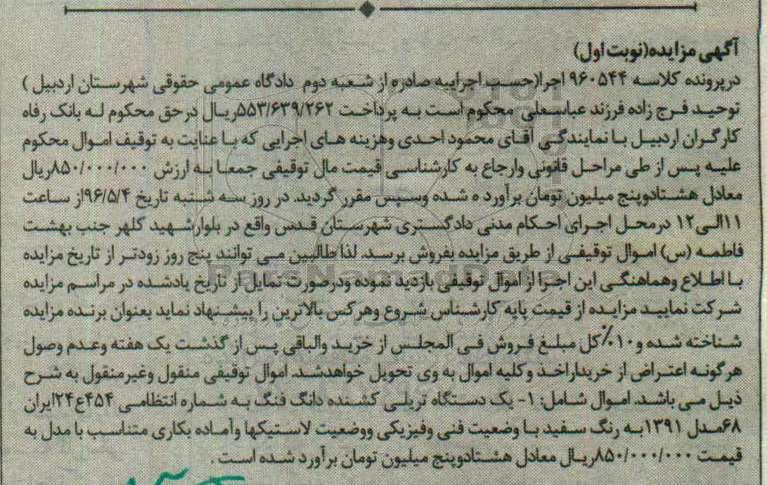 آگهی مزایده(نوبت اول)
درپرونده کلاسه ۹۶۰۵۴۴ اجرا(حسب اجراییه صادره از شعبه دوم دادگاه عمومی حقوقی شهرستان اردبیل )
توحید فرج زاده فرزند عباسعلی محکوم است به پرداخت ۵۵۳/۶۳۹/۲۶۲ریال درحق محکوم له بانک رفاه
کارگران اردبیل با نمایندگی آقای محمود احدی وهزینه های اجرایی که با عنایت به توقیف اموال محکوم
علیه پس از طی مراحل قانونی وارجاع به کارشناسی قیمت مال توقیفی جمعا به ارزش ۸۵۰/۰۰۰/۰۰۰ریال
معادل هشتادوپنج میلیون تومان برآورد ه شده وسپس مقرر گردید. در روز سه شنبه تاریخ ۹۶/۵/۴از ساعت
۱۱الی۱۲ درمحل اجرای احکام مدنی دادگستری شهرستان قدس واقع در بلوارشهید کلهر جنب بهشت
فاطمه (س) اموال توقیفی از طریق مزایده بفروش برسد. لذا طالبین می توانند پنج روز زودتر از تاریخ مزایده
با اطلاع وهماهنگی این اجرا از اموال توقیفی بازدید نموده ودرصورت تمایل از تاریخ یادشده در مراسم مزایده
شرکت نمایید مزایده از قیمت پایه کارشناس شروع وهرکس بالاترین را پیشنهاد نماید بعنوان برنده مزایده
شناخته شده و۱۰٪کل مبلغ فروش فی المجلس از خرید والباقی پس از گذشت یک هفته وعدم وصول
هرگونه اعتراض از خریداراخذ وکلیه اموال به وی تحویل خواهدشد. اموال توقیفی منقول وغیرمنقول به شرح
ذیل می باشد. اموال شامل: ۱- یک دستگاه تریلی کشنده دانگ فنگ به شماره انتظامی ۴۵۴ع۲۴ایران
۶۸مدل ۱۳۹۱به رنگ سفید با وضعیت فنی وفیزیکی ووضعیت لاستیکها وآماده بکاری متناسب با مدل به
قیمت ۸۵۰/۰۰۰/۰۰۰ریال معادل هشتادوپنج میلیون تومان برآورد شده است .
ParsNamadData